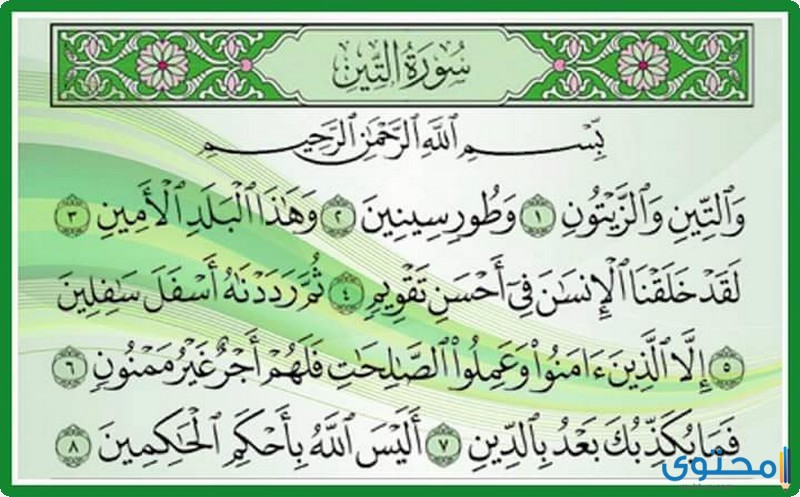 سُورَةُ التِّينِ
بِّسْمِ اللَّهِ الرَّحْمَٰنِ الرَّحِيمِ
وَالتِّينِ وَالزَّيْتُونِ ١ وَطُورِ سِينِينَ ٢ وَهَٰذَا الْبَلَدِ الْأَمِينِ ٣
لَقَدْ خَلَقْنَا الْإِنسَٰنَ فِىٓ أَحْسَنِ تَقْوِيمٍ ٤ ثُمَّ رَدَدْنَٰهُ أَسْفَلَ سَٰفِلِينَ
٥ إِلَّا الَّذِينَ ءَامَنُوا۟ وَعَمِلُوا۟ الصَّٰلِحَٰتِ فَلَهُمْ أَجْرٌ غَيْرُ مَمْنُونٍ ٦
فَمَا يُكَذِّبُكَ بَعْدُ بِالدِّينِ ٧ أَلَيْسَ اللَّهُ بِأَحْكَمِ الْحَٰكِمِينَ ٨
محتوى